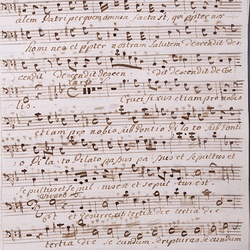 alem Patri per quem omnia facta st, qui ppter nos
homines et ppter nostram Salutem descendit des
cendit Descendit descen: dit descendit de Coe
lis. Cruci fixus etiam pro nobis
etiam pro nobis sub Pontio Pilato sub Ponti
o Pilato Pilato passus passus et sepultus et
sepultus et sepul tus est et sepul tus est.
et resurrexit tertia die tertia die
tertia die secundum scripturas secundum